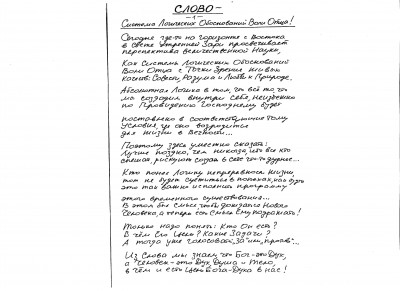 СЛОВО -
- 1 -
Система Логических Обоснований Воли Отца!
Сегодня где-то на горизонте с Востока
в свете Утренней Зари просвечивает
перспектива величественной Науки,
Как Система Логических Обоснований
Воли Отца с Точки Зрения живых
качеств Совести, Разума и Любви к Природе.
Абсолютная Логика в том, что всё то, что
мы создадим внутри себя, неизбежно
по Провидению Господнему будет
поставлено в соответствующие тому
Условия, где оно возродится
для жизни в Вечности...
Поэтому здесь уместно сказать:
Лучше поздно, чем никогда, ибо все кто
спешат, рискуют создать в себе что-то дурное...
Кто понял Логику непрерывной жизни,
тот не будет суетиться в попыхах, как будто
это так важно исполнить программу
этого временного существования...
В этом был смысл, чтобы дождаться Нового
Человека, а теперь есть смысл Ему подражать!
Только надо понять: Кто Он есть?
В чём Его Цель? Какие Задачи?
А тогда уже голосовать, "за" или "против"...
Из Слова мы знаем, что Бог - это Дух,
а Человек - это Дух, Душа и Тело,
в чём и есть Цель Бога-Духа в нас!